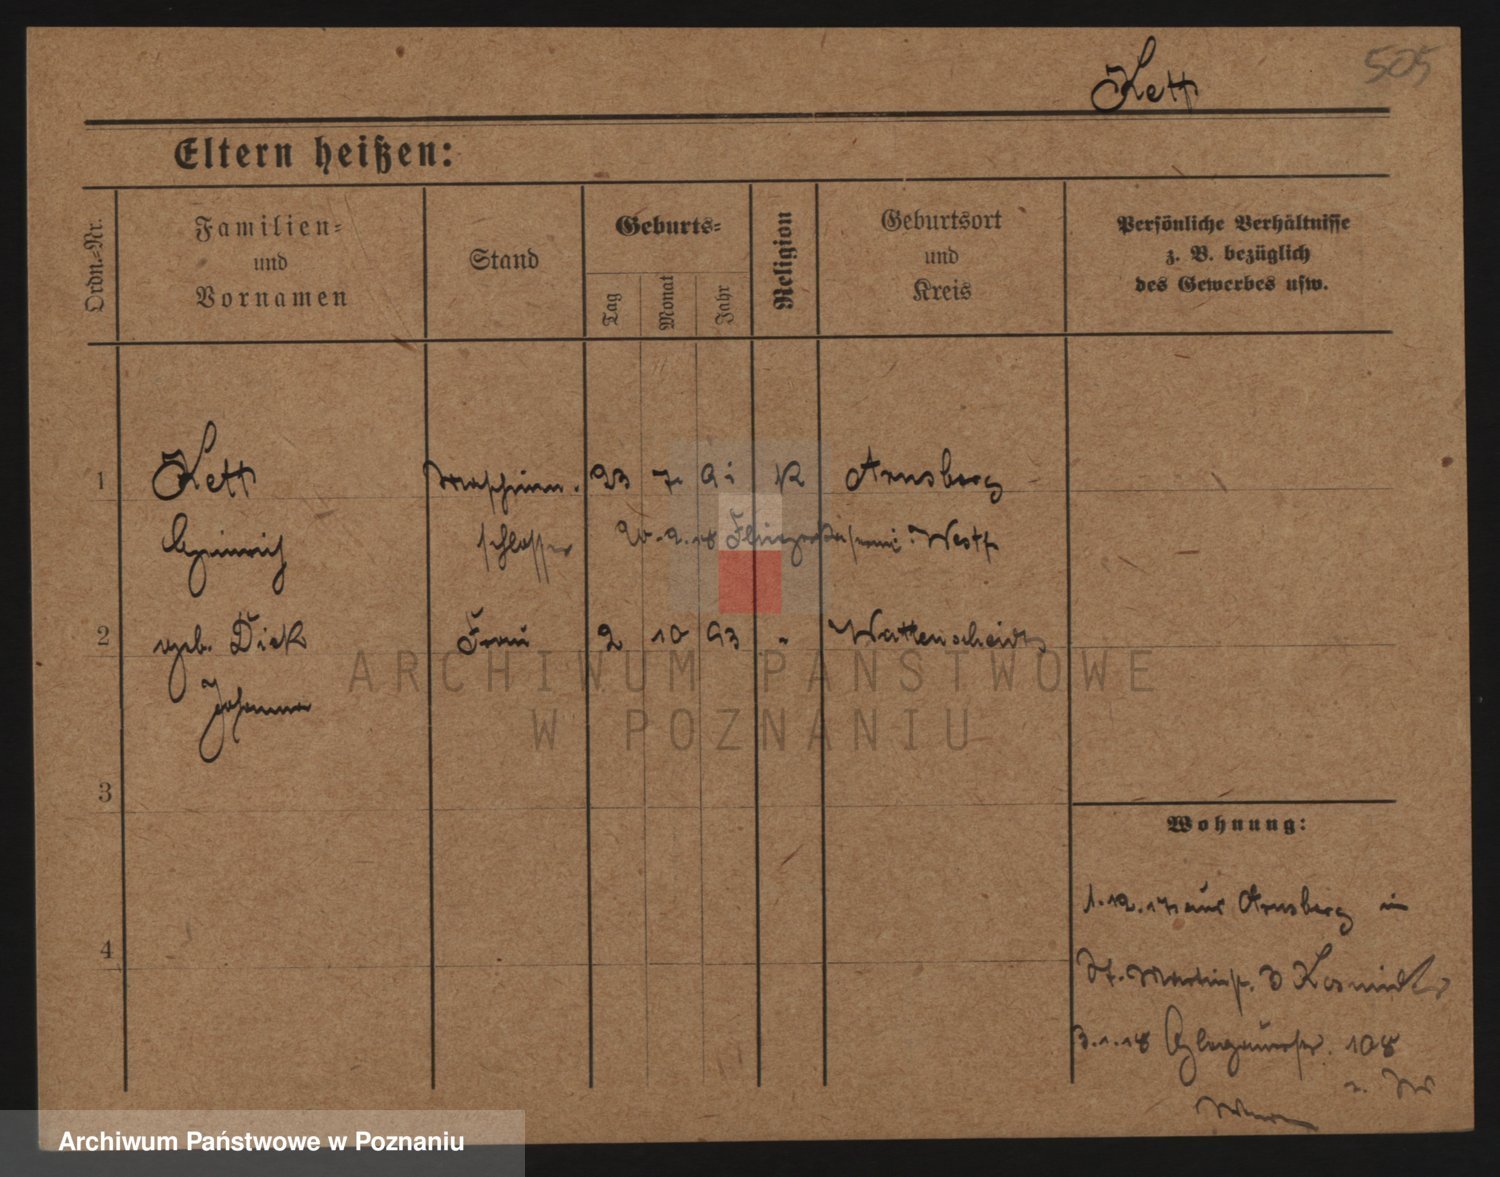 505
Kett
Eltern heißen:
Ordn.-Nr.
Familien-
und
Vornamen
Stand
Geburts-
Tag
Monat
Jahr
Religion
Geburtsort
und
Kreis
Persönliche Verhältnisse
z. B. bezüglich
des Gewerbes usw.
1 Kett Maschinen. 23 7. 91 K Arnsberg
Heinrich schlosser 20.2.18 Westf
2 geb. Dick Frau 2 10 93 " Wattenscheid
Johanna
3
Wohnung:
1.12.17 aus Arnsberg in
St. Martinstr. 3
4
3.1.18 Glogauerstr. 108
ARCHIWUM PAŃSTWOWE
W POZNANIU
Archiwum Państwowe w Poznaniu